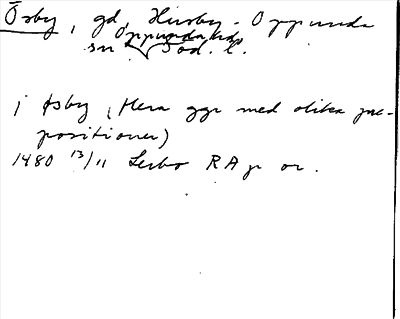 Ösby, gd, Husby-Oppunda
Oppunda hd
sn Söd. l.
j Øsby (flera ggr med olika pre-
positioner)
1480 13/11 Lerbo RAp or.